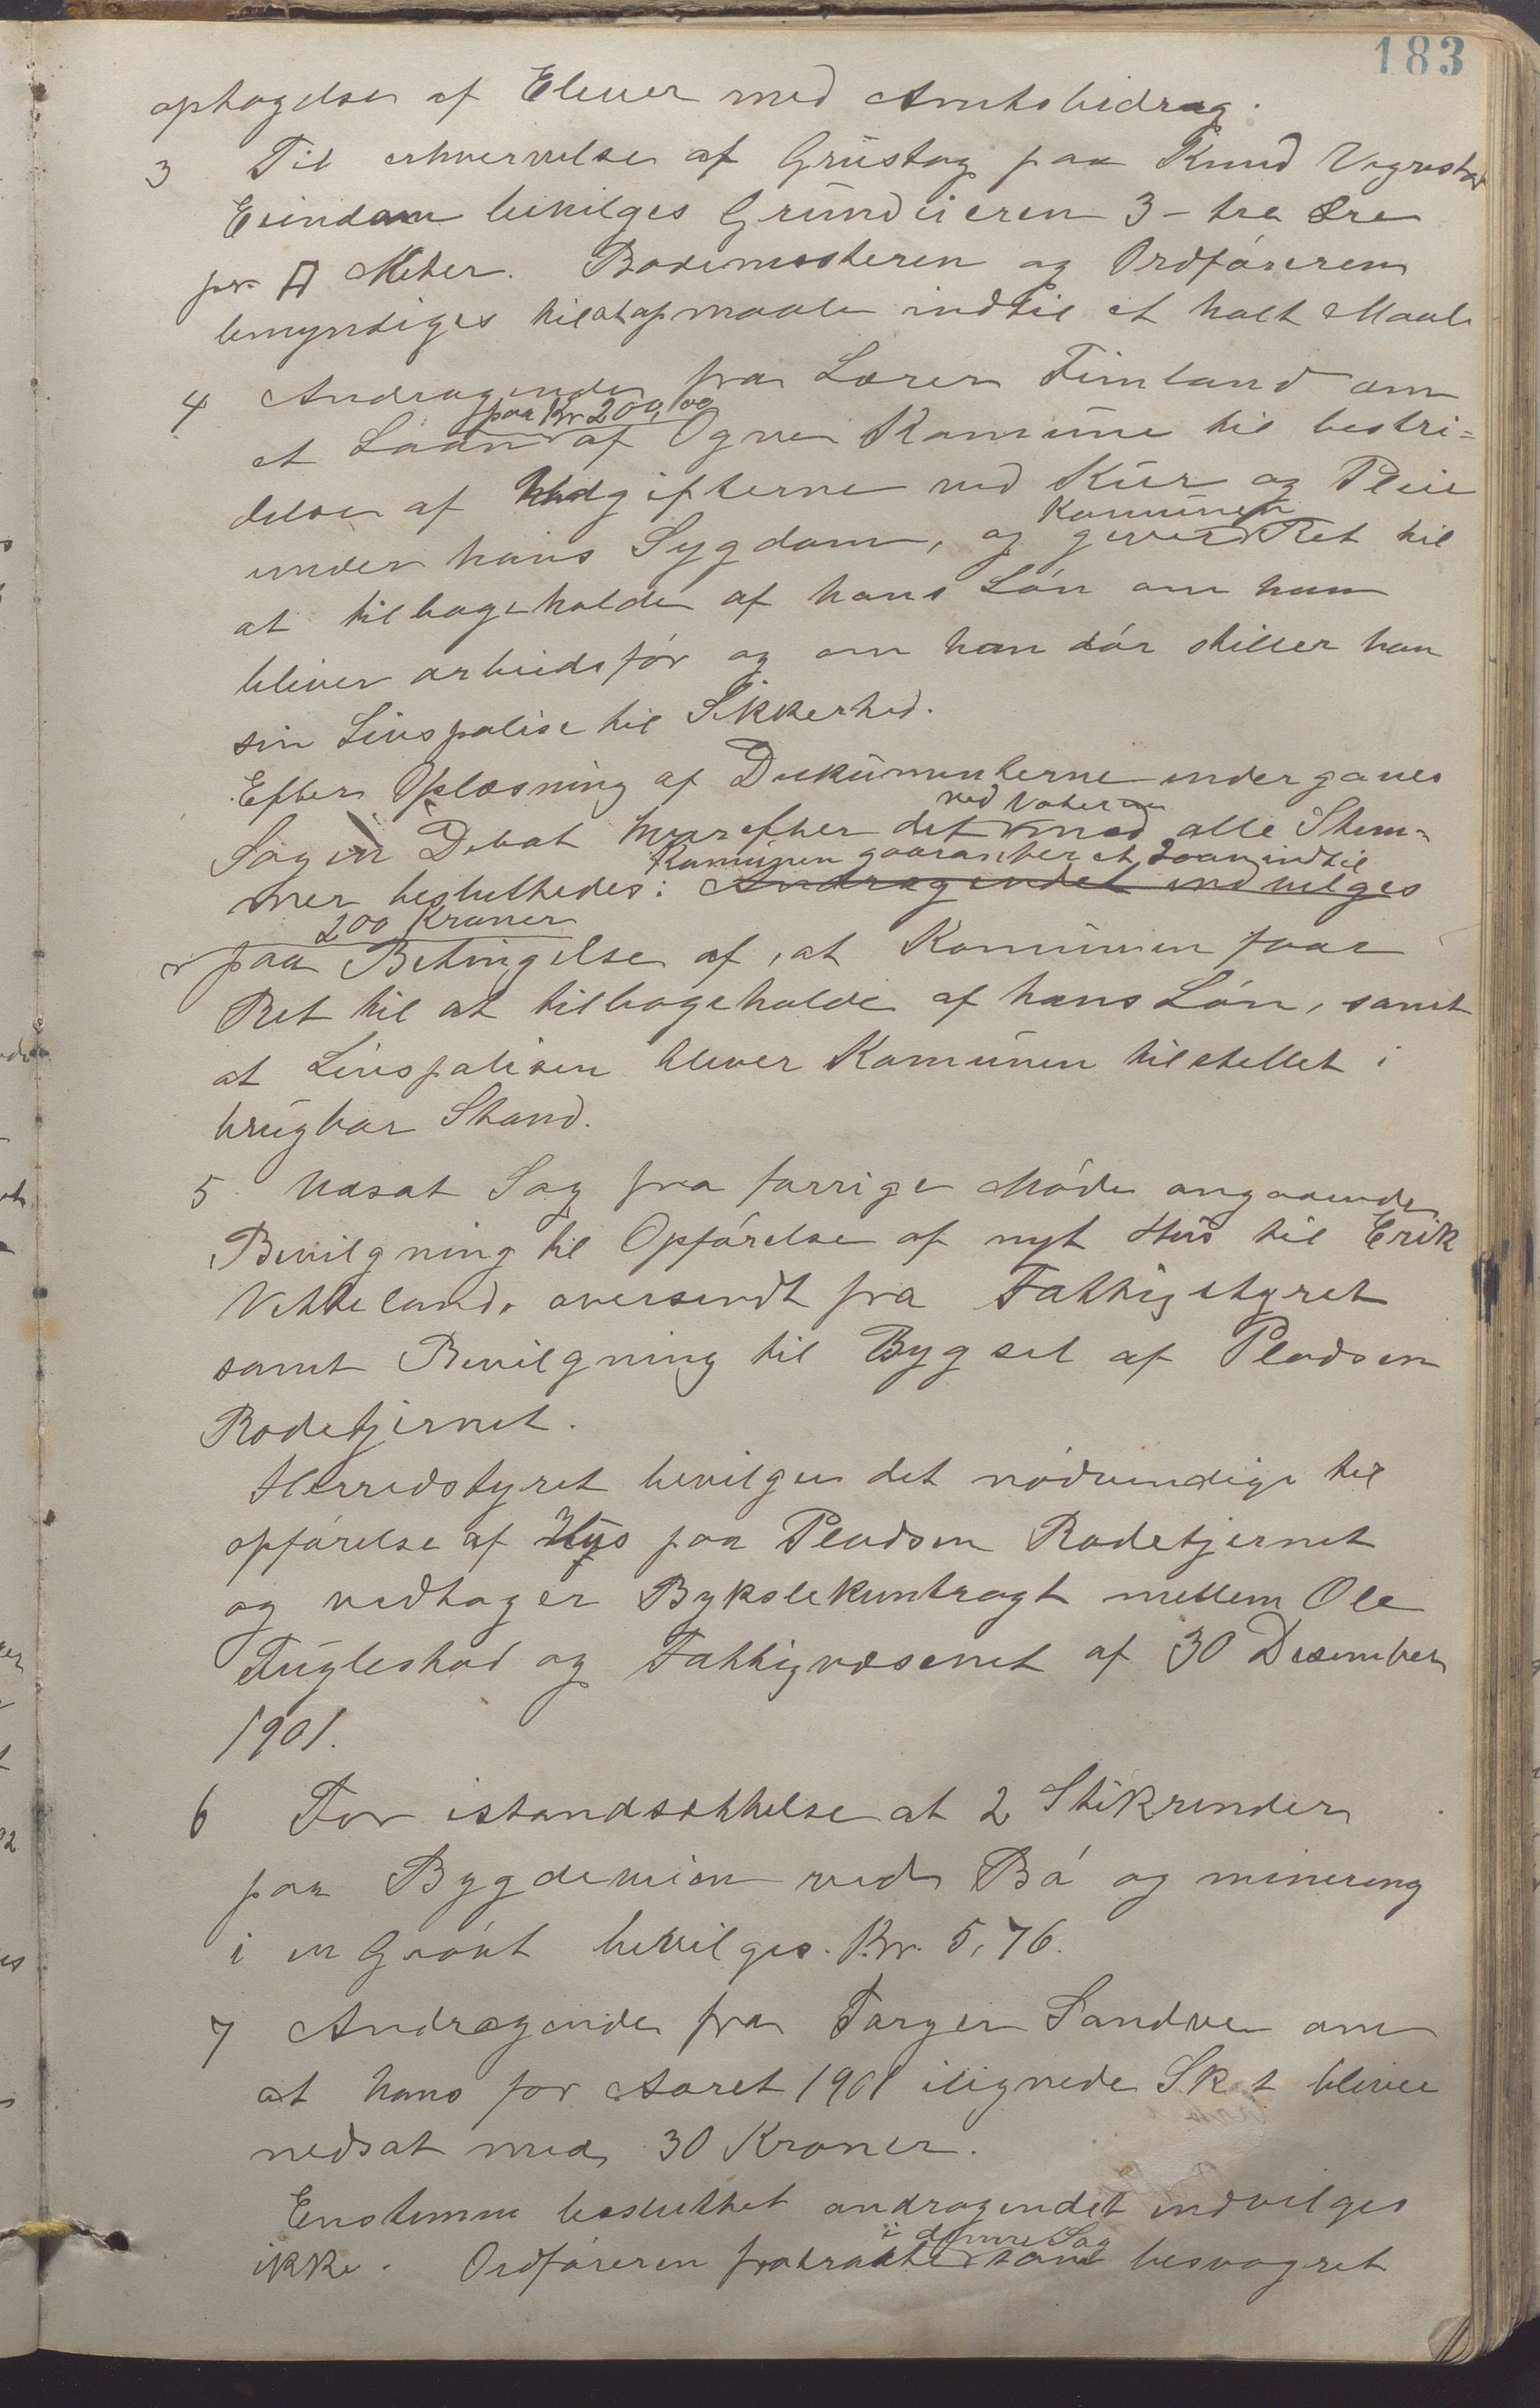 183
optagelse af Elever med Amtsbidrag.
3 Til erhvervelse af Grustag paa Knud Vagrestad
Eiendom bevilges Grundeieren 3 - tre Øre
pr □ Meter. Rodemesteren og Ordføreren
bemyndiges til at opmaale indtil et halt Maal
4 Andragende fra Lærer Fimland om
paa Kr 200,00
et Laan af Ogne Komune til bestri=
delse af Udgifterne ved Kur og Pleie
Komunen
under hans Sygdom, og giver Ret til
at tilbageholde af hans Løn om han
bliver arbeidsfør og om han dør stiller han
sin Livspolise til Sikkerhed.
Efter Oplæsning af Dokumenterne undergaves
ved Votering
Sagen Debat hvorefter det med alle Stem=
Komunen gaaranterer et Laan indtil
mer besluttedes: Andragendet indvilges
200 Kroner
paa Betingelse af, at Komunen faar
Ret til at tilbageholde af hans Løn, samt
at Livspolisen bliver Komunen tilstellet i
brugbar Stand.
5 Udsat Sag fra forrige Møde angaaende
Bevilgning til Opførelse af nyt Hus til Erik
Vetteland, oversendt fra Fattigstyret
samt Bevilgning til Bygsel af Pladsen
Rodetjernet.
Herredstyret bevilger det nødvendige til
opførelse af Hus paa Pladsen Rodetjernet
og vedtager Bykslekuntragt mellem Ole
Fuglestad og Fattigvæsenet af 30 Desember
1901.
6 For istandsættelse at 2 Stikrender
paa Bygdeveien ved Bø og minering
i en Grøvt bevilges Kr. 5,76.
7 Andragende fra Torger Sandve om
at hans for Aaret 1901 ilignede Skat bliver
nedsat med 30 Kroner.
Enstemmi besluttet andragendet indvilges
i denne Sag
ikke. Ordføreren fratraatte som besvogret